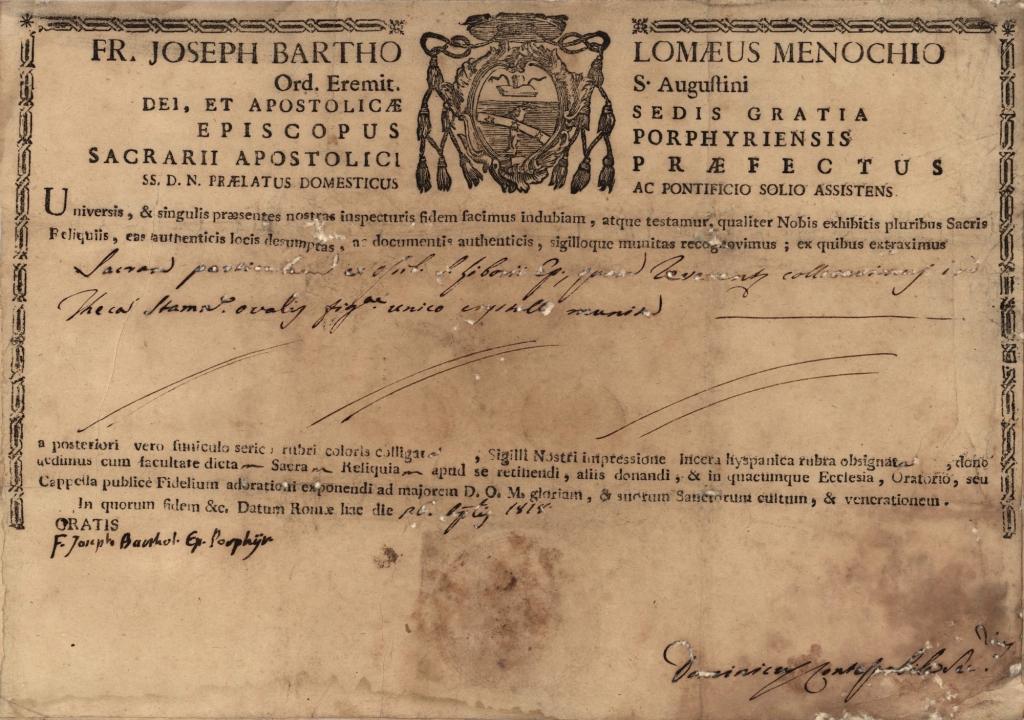 FR. JOSEPH BARTHO LOMÆUS MENOCHIO
Ord. Eremit. S. Augustini
DEI, ET APOSTOLICÆ SEDIS GRATIA
EPISCOPUS PORPHYRIENSIS
SACRARII APOSTOLICI PRÆFECTUS
SS. D. N. PRÆLATUS DOMESTICUS AC PONTIFICIO SOLIO ASSISTENS.
Universis, & singulis præsentes nostras inspecturis fidem facimus indubiam, atque testamur, qualiter Nobis exhibitis pluribus Sacris
Reliquiis, eas authenticis locis desumptas, ac documentis authenticis, sigilloque munitas recognovimus; ex quibus extraximus
Sacram particulam ex Ossib. S. Ep., quam Reverenter collocavimus in
Theca ovalis fig.ae unico crystallo munita
a posteriori vero funiculo serico rubri coloris colligata, Sigilli Nostri impressione in cera hyspanica rubra obsignata, dono
dedimus cum facultate dictam Sacram Reliquiam apud se retinendi, aliis donandi, & in quacumque Ecclesia, Oratorio, seu
Cappella publicè Fidelium adorationi exponendi ad majorem D. O. M. gloriam, & suorum Sanctorum cultum, & venerationem.
In quorum fidem &c. Datum Romæ hac die 1818
GRATIS
F. Joseph Barthol. Ep. Porphÿr
Dominicus